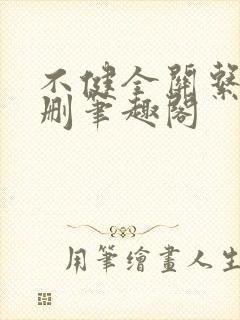 不健全關繫
刪筆趣閣
用筆繪畫人生